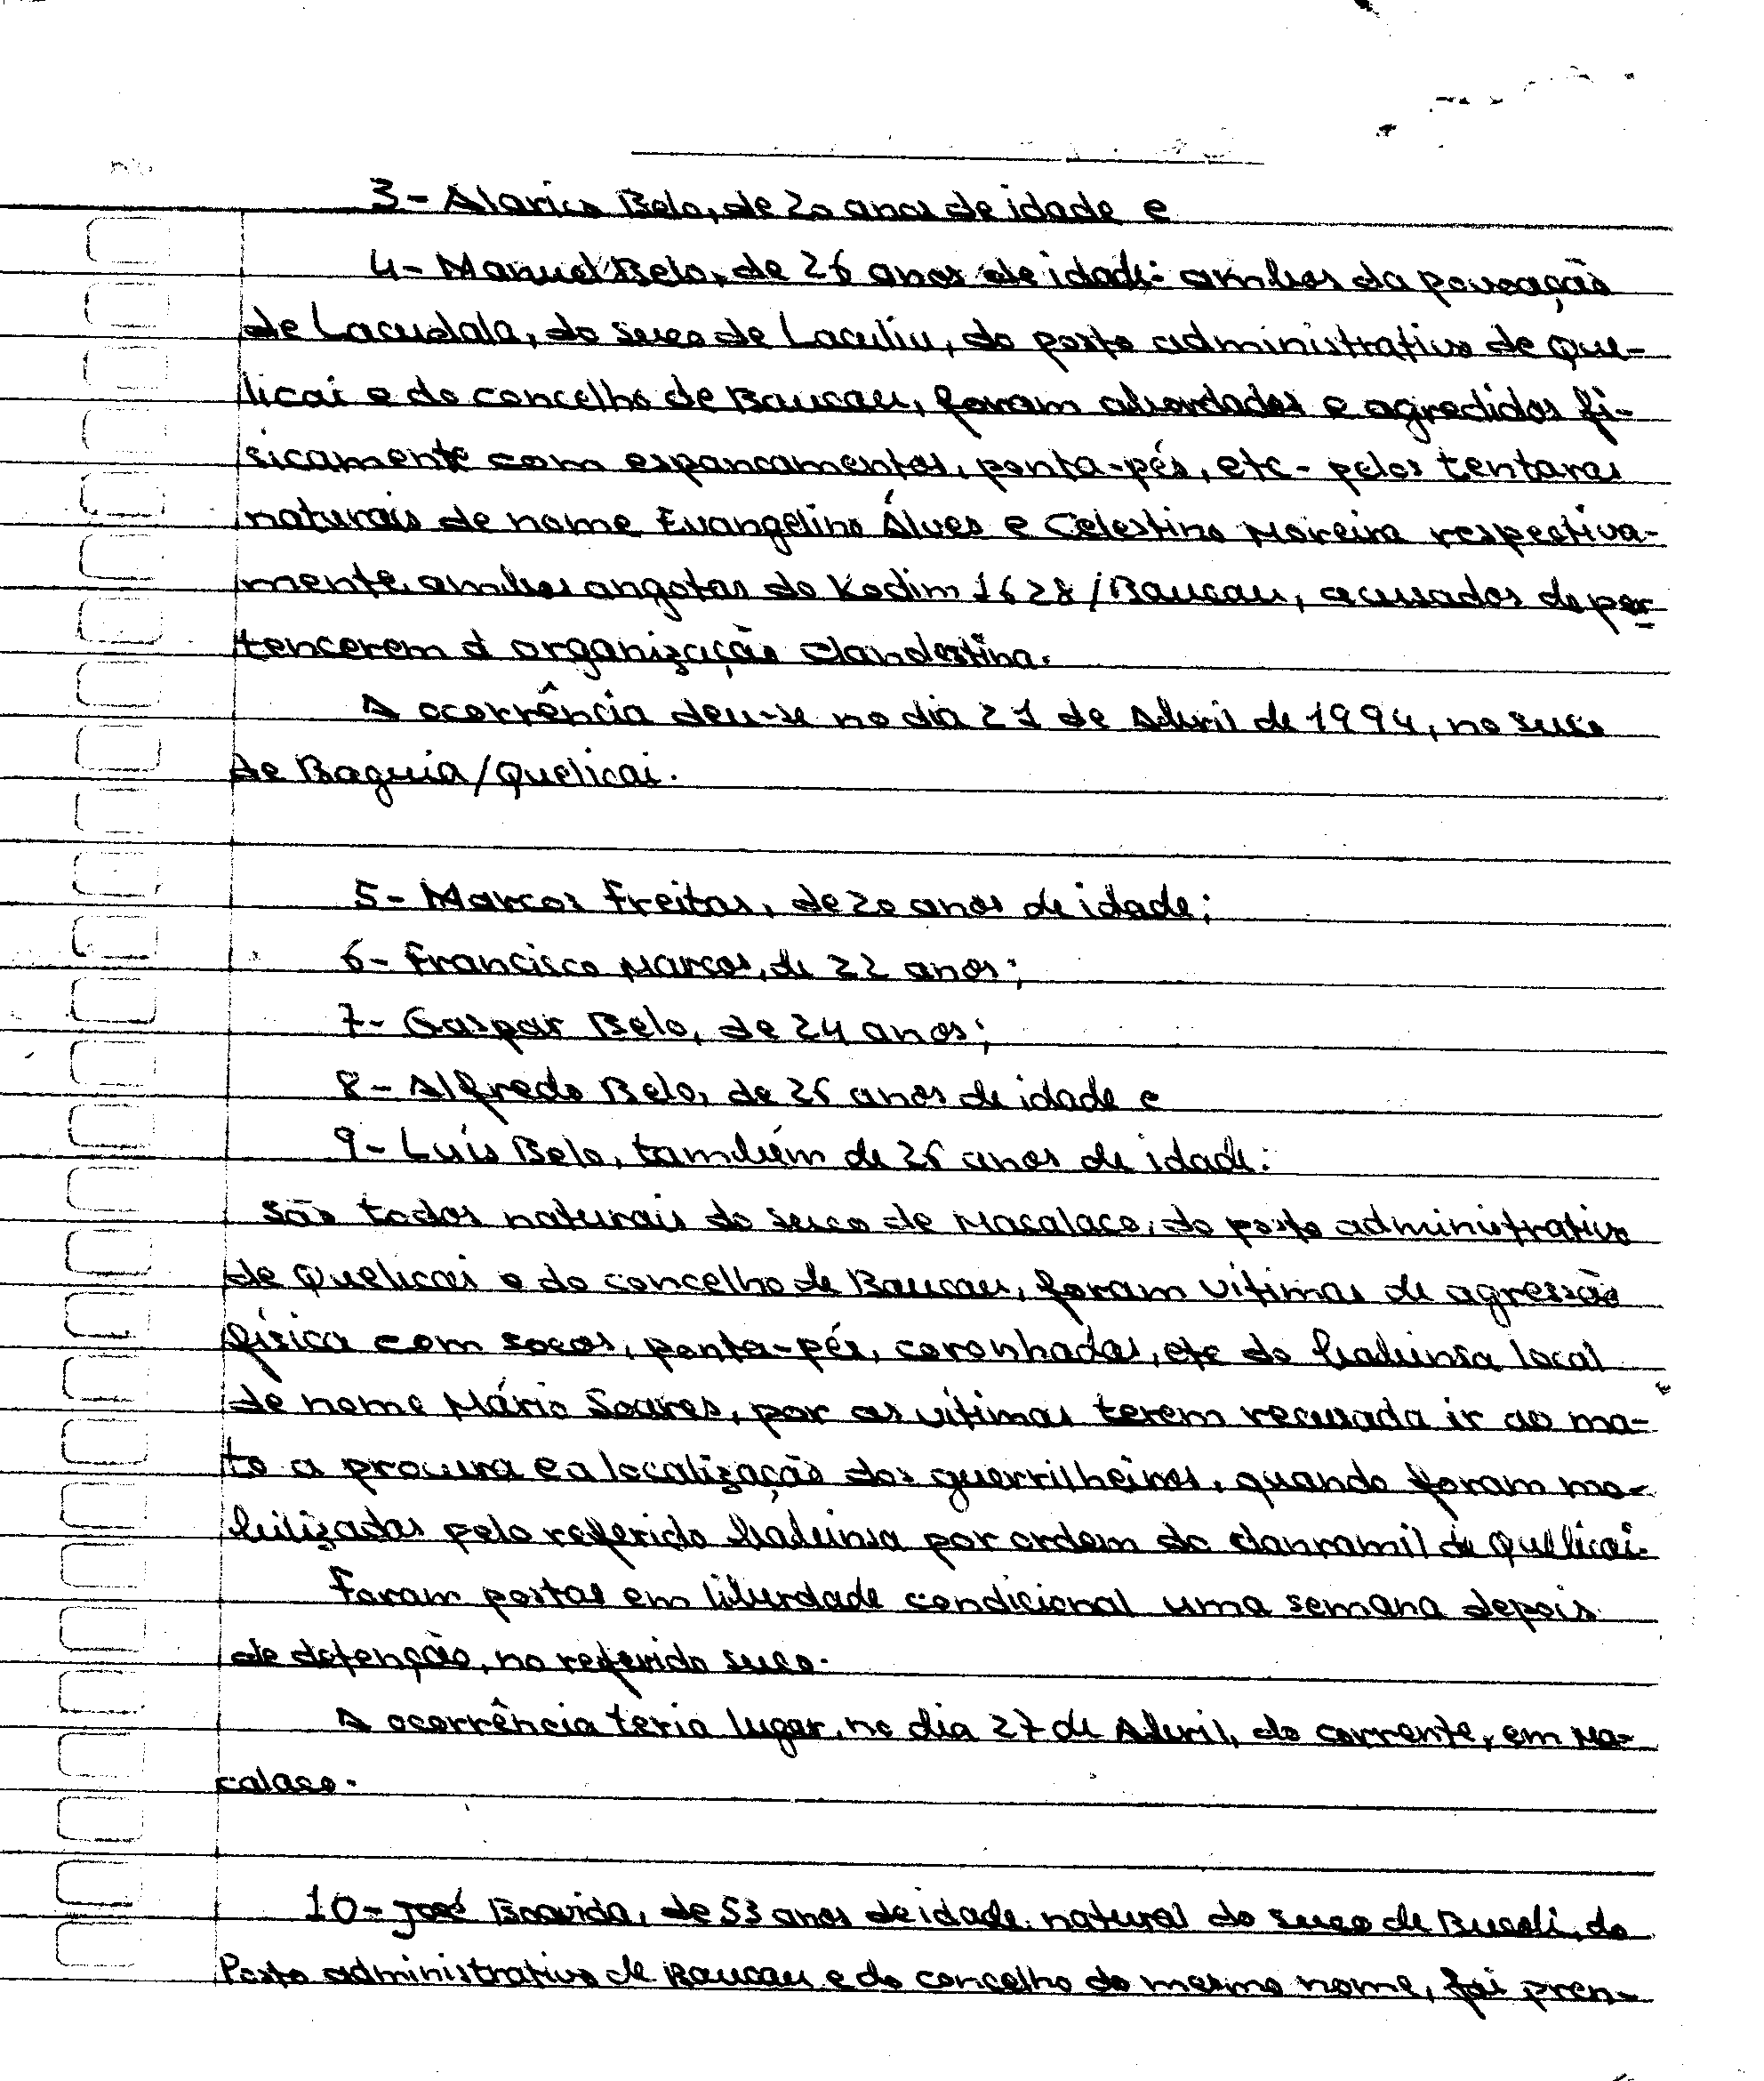 3- Alarico Belo, de 20 anos de idade e
4- Manuel Belo, de 26 anos de idade: ambos da povoação
de Lacudala, do suco de Laculiu, do posto administrativo de Que-
licai e do concelho de Baucau, foram abordados e agredidos fi-
sicamente com espancamentos, ponta-pés, etc - pelos tentaras
naturais de nome Evangelino Álves e Celestino Moreira respectiva-
mente, ambos angotas do Kodim 1628/Baucau, acusados de per
tencerem à organização Clandestina.
A ocorrência deu-se no dia 21 de Abril de 1994, no suco
de Baguia/Quelicai.
5- Marcos Freitas, de 20 anos de idade;
6- Francisco Marcos, de 22 anos;
7- Gaspar Belo, de 24 anos;
8- Alfredo Belo, de 26 anos de idade e
9- Luís Belo, também de 26 anos de idade:
São todos naturais do suco de Macalaco, do posto administrativo
de Quelicai e do concelho de Baucau, foram vítimas de agressão
física com socos, ponta-pés, coronhadas, etc do babinsa local
de nome Mário Soares, por as vítimas terem recusada ir ao ma-
to a procura e a localização dos guerrilheiros, quando foram mo-
bilizadas pelo referido babinsa por ordem do danramil de Quelicai.
Foram postas em liberdade condicional uma semana depois
de detenção, no referido suco.
A ocorrência teria lugar, no dia 27 de Abril, do corrente, em Ma-
calaco.
10- José Boavida, de 53 anos de idade, natural do suco de Bucoli, do
Posto administrativo de Baucau e do concelho do mesmo nome, foi pren-